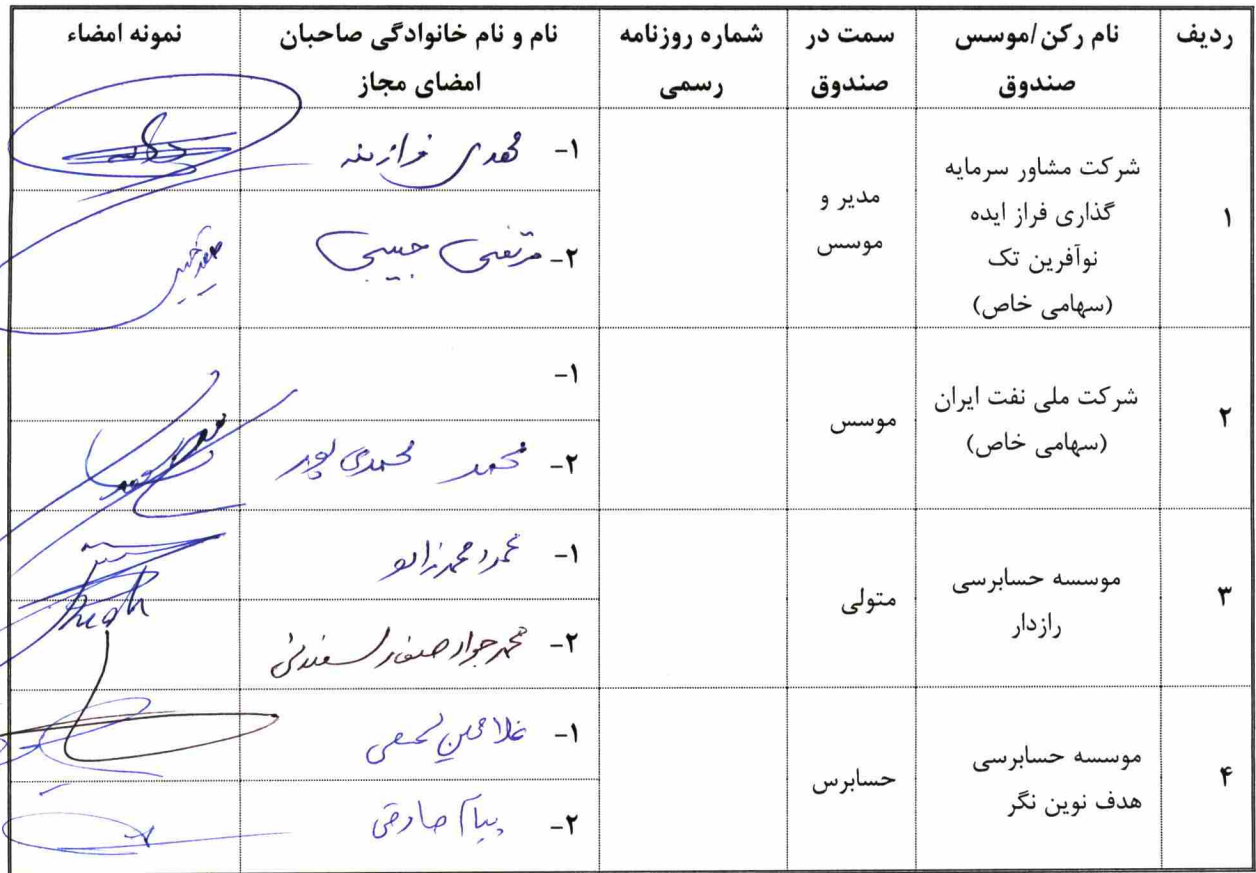 ردیف
نام رکن/موسس
صندوق
سمت در
صندوق
شماره روزنامه
رسمی
نام و نام خانوادگی صاحبان
امضای مجاز
نمونه امضاء
۱
شرکت مشاور سرمایه
گذاری فراز ایده
نوآفرین تک
(سهامی خاص)
مدیر و
موسس
۱- مهدی فرازمند
۲- مرتضی حبیبی
۲
شرکت ملی نفت ایران
(سهامی خاص)
موسس
۱-
۲- محمد محمدی پور
۳
موسسه حسابرسی
رازدار
متولی
۱- محمود محمدزاده
۲- محمدجواد صفار
۴
موسسه حسابرسی
هدف نوین نگر
حسابرس
۱-
۲- پیام صادقی